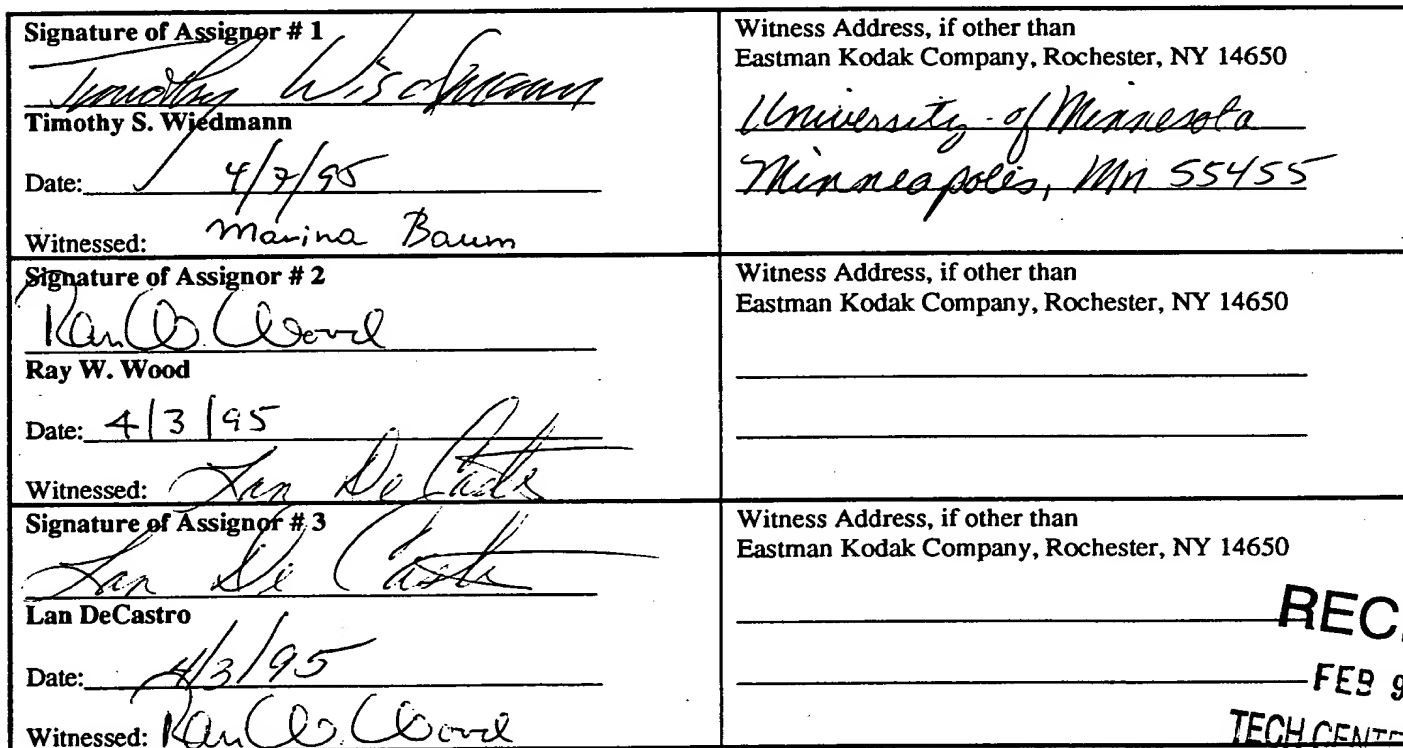 Signature of Assignor # 1
Timothy Wiedmann
Timothy S. Wiedmann
Date: 4/7/95
Witnessed: Marina Baum
Witness Address, if other than
Eastman Kodak Company, Rochester, NY 14650
University of Minnesota
Minneapolis, Mn 55455
Signature of Assignor # 2
Ray W. Wood
Ray W. Wood
Date: 4/3/95
Witnessed: Lan De Castro
Witness Address, if other than
Eastman Kodak Company, Rochester, NY 14650
Signature of Assignor # 3
Lan De Castro
Lan DeCastro
Date: 4/3/95
Witnessed: Ray W. Wood
Witness Address, if other than
Eastman Kodak Company, Rochester, NY 14650
REC
FEB 9
TECH CENTE